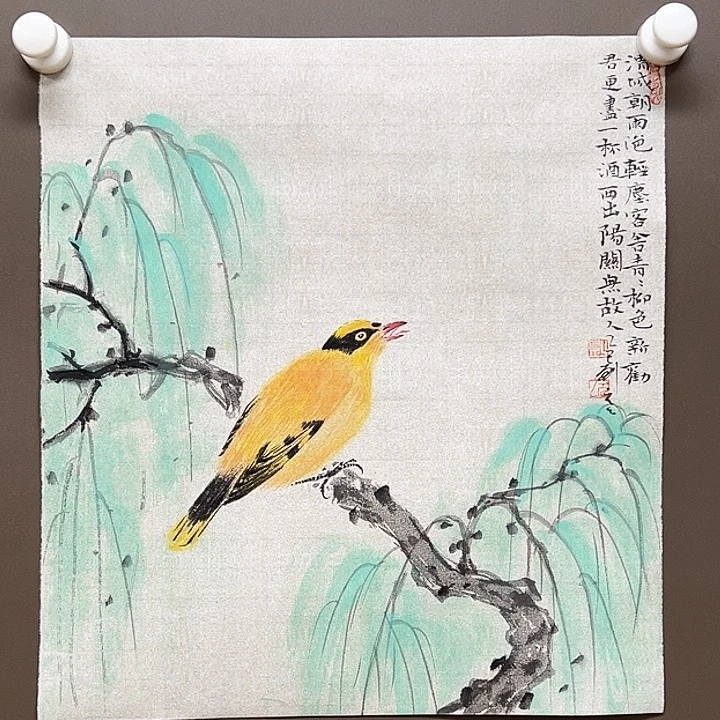 渭城朝雨浥輕塵客舍青〻柳色新勸
君更盡一杯酒西出陽關無故人